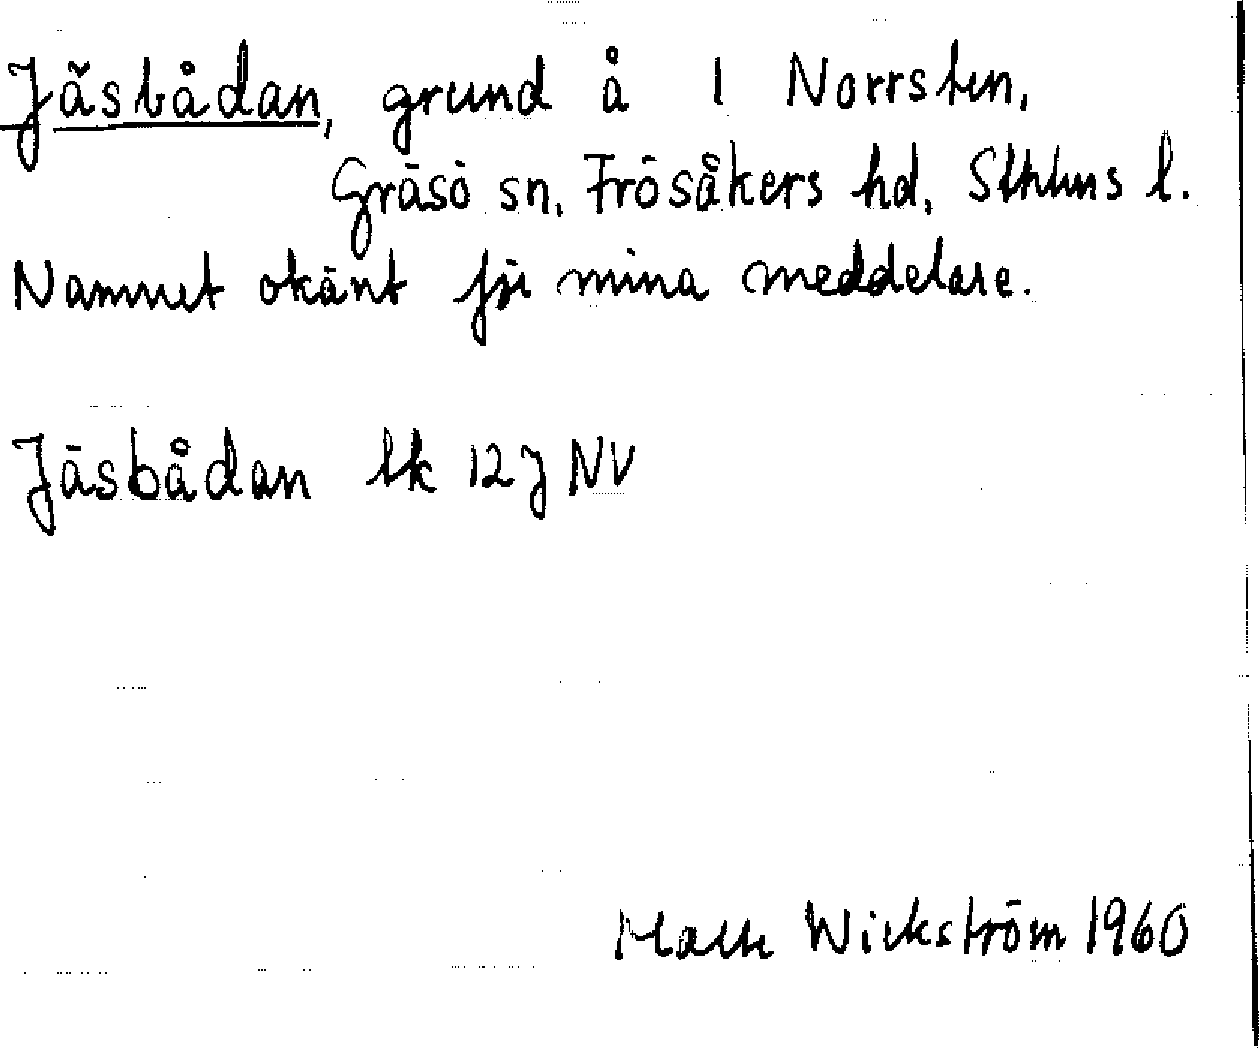 Jäsbådan, grund å 1 Norrsten,
Gräsö sn, Frösåkers hd, Sthlms l.
Namnet okänt för mina meddelare.
Jäsbådan lk 12J NV
Wickström 1960